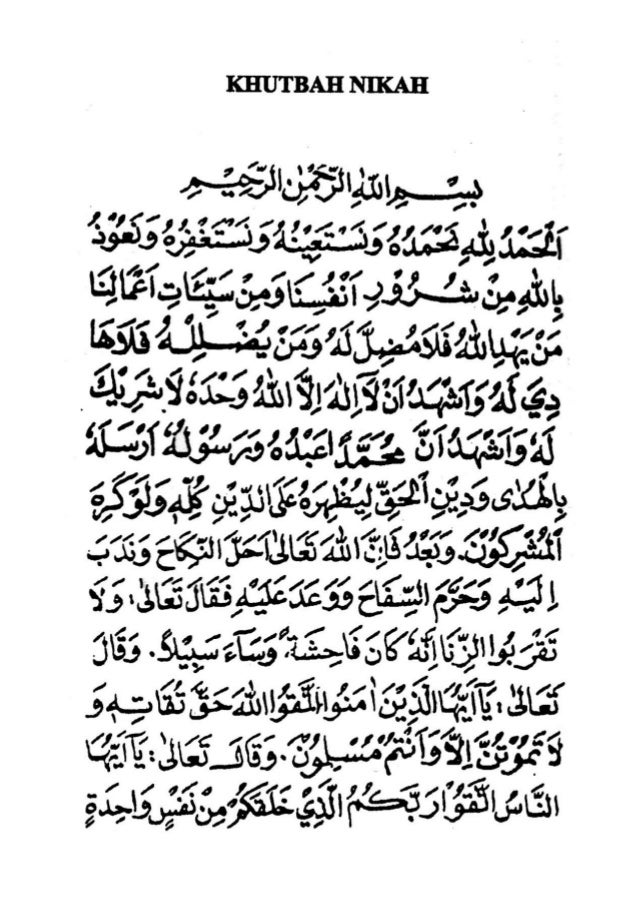 KHUTBAH NIKAH
بِسْمِ اللهِ الرَّحْمٰنِ الرَّحِيْمِ
اَلْحَمْدُ لِلّٰهِ نَحْمَدُهُ وَنَسْتَعِيْنُهُ وَنَسْتَغْفِرُهُ وَنَعُوْذُ
بِاللهِ مِنْ شُرُوْرِ اَنْفُسِنَا وَمِنْ سَيِّئَاتِ اَعْمَالِنَا
مَنْ يَهْدِ اللهُ فَلَا مُضِلَّ لَهُ وَمَنْ يُضْلِلْهُ فَلَا هَا
دِيَ لَهُ وَاَشْهَدُ اَنْ لَآ اِلٰهَ اِلَّا اللهُ وَحْدَهُ لَا شَرِيْكَ
لَهُ وَاَشْهَدُ اَنَّ مُحَمَّدًا عَبْدُهُ وَرَسُوْلُهُ اَرْسَلَهُ
بِالْهُدٰى وَدِيْنِ الْحَقِّ لِيُظْهِرَهُ عَلَى الدِّيْنِ كُلِّهِ وَلَوْ كَرِهَ
الْمُشْرِكُوْنَ. وَبَعْدُ فَاِنَّ اللهَ تَعَالٰى اَحَلَّ النِّكَاحَ وَنَدَبَ
اِلَيْهِ وَحَرَّمَ السِّفَاحَ وَوَعَدَ عَلَيْهِ فَقَالَ تَعَالٰى: وَلَا
تَقْرَبُوا الزِّنَا اِنَّهُ كَانَ فَاحِشَةً، وَسَآءَ سَبِيْلًا. وَقَالَ
تَعَالٰى: يَآاَيُّهَا الَّذِيْنَ اٰمَنُوا اتَّقُوا اللهَ حَقَّ تُقَاتِهِ وَ
لَا تَمُوْتُنَّ اِلَّا وَاَنْتُمْ مُسْلِمُوْنَ. وَقَالَ تَعَالٰى: يَآاَيُّهَا
النَّاسُ اتَّقُوْا رَبَّكُمُ الَّذِيْ خَلَقَكُمْ مِنْ نَفْسٍ وَاحِدَةٍ